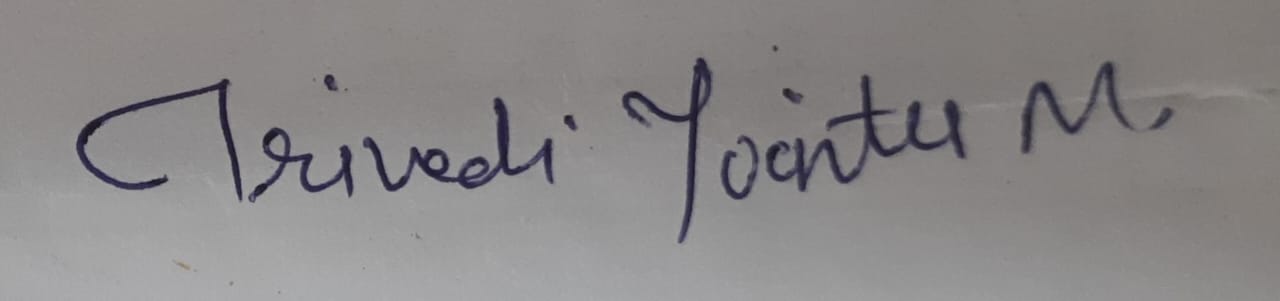 Trivedi Jointu M.